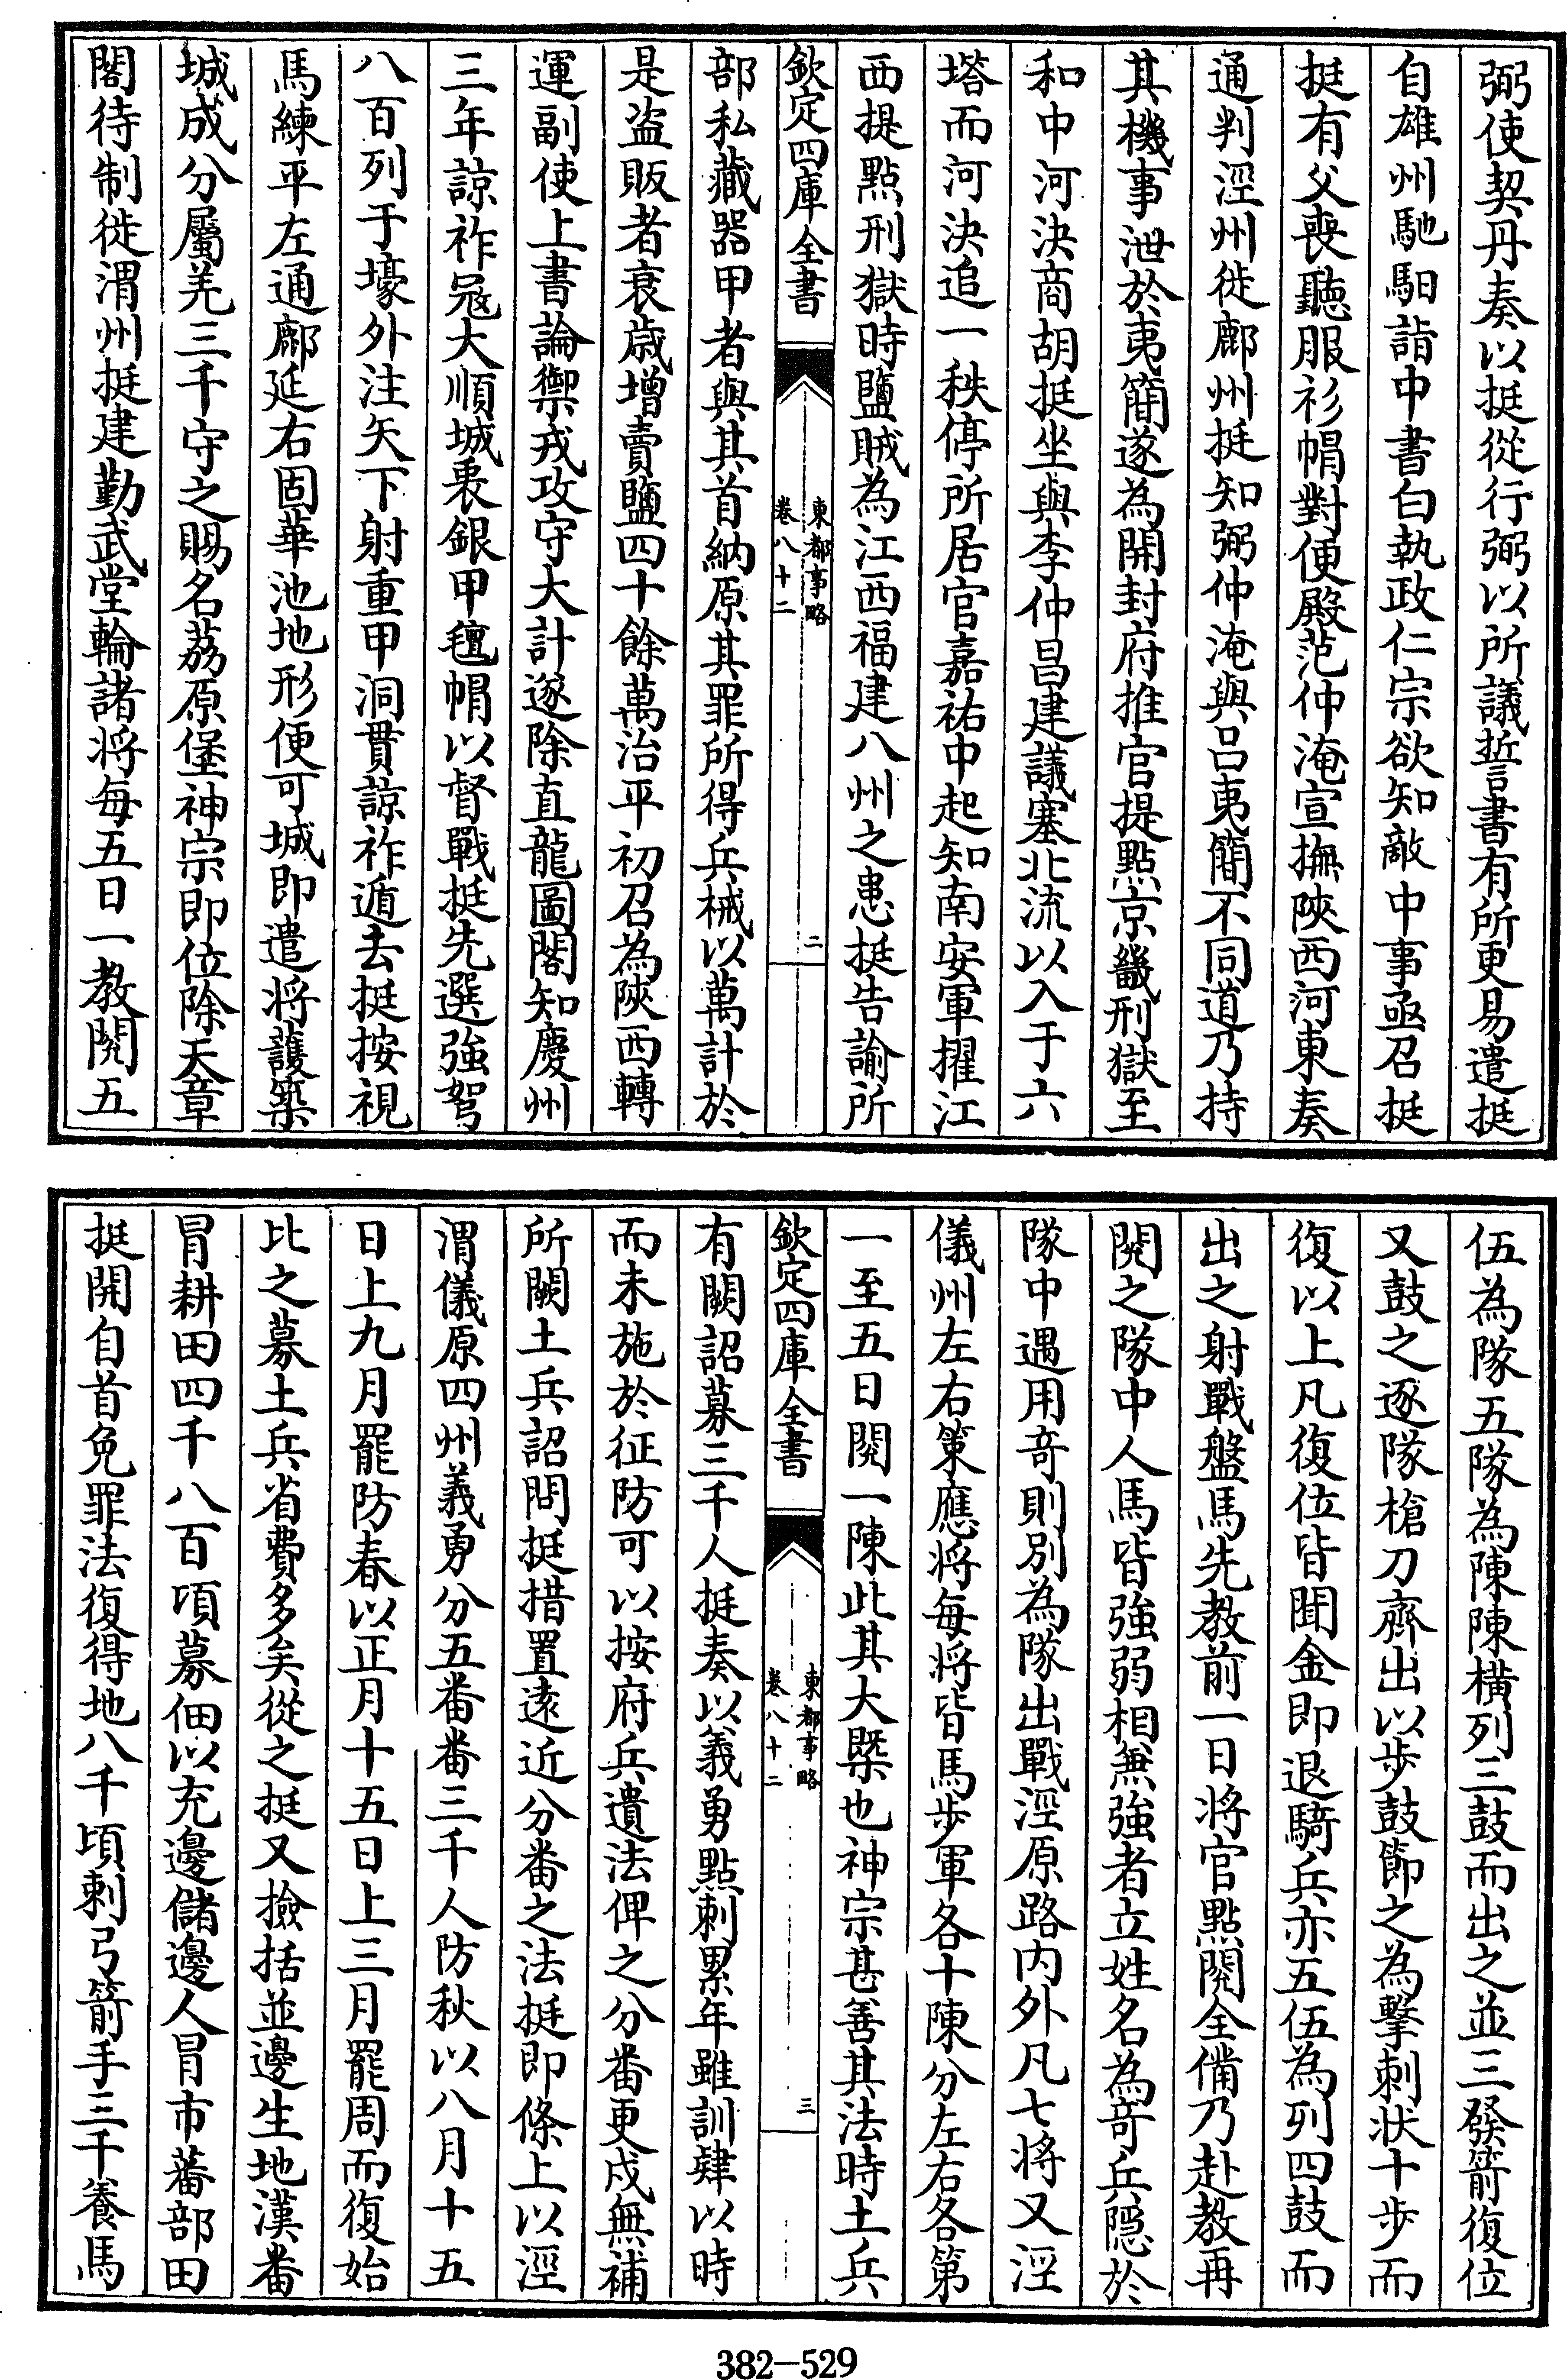 弼使契丹奏以挺從行弼以所議誓書有所更易遣挺
自雄州馳馹詣中書白執政仁宗欲知敵中事亟召挺
挺有父喪聽服衫帽對便殿范仲淹宣撫陜西河東奏
通判涇州徙鄜州挺知弼仲淹與呂夷簡不同道乃持
其機事泄於夷簡遂為開封府推官提點京畿刑獄至
和中河決商胡挺坐與李仲昌建議塞北流以入于六
塔而河決追一秩停所居官嘉祐中起知南安軍擢江
西提點刑獄時鹽賊為江西福建八州之患挺告諭所
欽定四庫全書
東都事略
卷八十二
二
部私藏器甲者與其首納原其罪所得兵械以萬計於
是盜販者衰歲增賣鹽四十餘萬治平初召為陜西轉
運副使上書論禦戎攻守大計遂除直龍圖閣知慶州
三年諒祚寇大順城裹銀甲氊帽以督戰挺先選強弩
八百列于壕外注矢下射重甲洞貫諒祚遁去挺按視
馬練平左通鄜延右固華池地形便可城即遣將護築
城成分屬羌三千守之賜名荔原堡神宗即位除天章
閣待制徙渭州挺建勤武堂輪諸將每五日一教閱五
伍為隊五隊為陳陳橫列三鼓而出之並三發箭復位
又鼓之逐隊槍刀齊出以步鼓節之為擊刺狀十步而
復以上凡復位皆聞金即退騎兵亦五伍為列四鼓而
出之射戰盤馬先教前一日將官點閱全備乃赴教再
閱之隊中人馬皆強弱相兼強者立姓名為奇兵隱於
隊中遇用奇則別為隊出戰涇原路內外凡七將又涇
儀州左右策應將每將皆馬步軍各十陳分左右各第
一至五日閱一陳此其大槩也神宗甚善其法時土兵
欽定四庫全書
東都事略
卷八十二
三
有闕詔募三千人挺奏以義勇點刺累年雖訓肄以時
而未施於征防可以按府兵遺法俾之分番更戍無補
所闕土兵詔問挺措置遠近分番之法挺即條上以涇
渭儀原四州義勇分五番番三千人防秋以八月十五
日上九月罷防春以正月十五日上三月罷周而復始
比之募土兵省費多矣從之挺又撿括並邊生地漢番
冒耕田四千八百項募佃以充邊儲邊人冒市蕃部田
挺開自首免罪法復得地八千頃刺弓箭手三千養馬
382—529